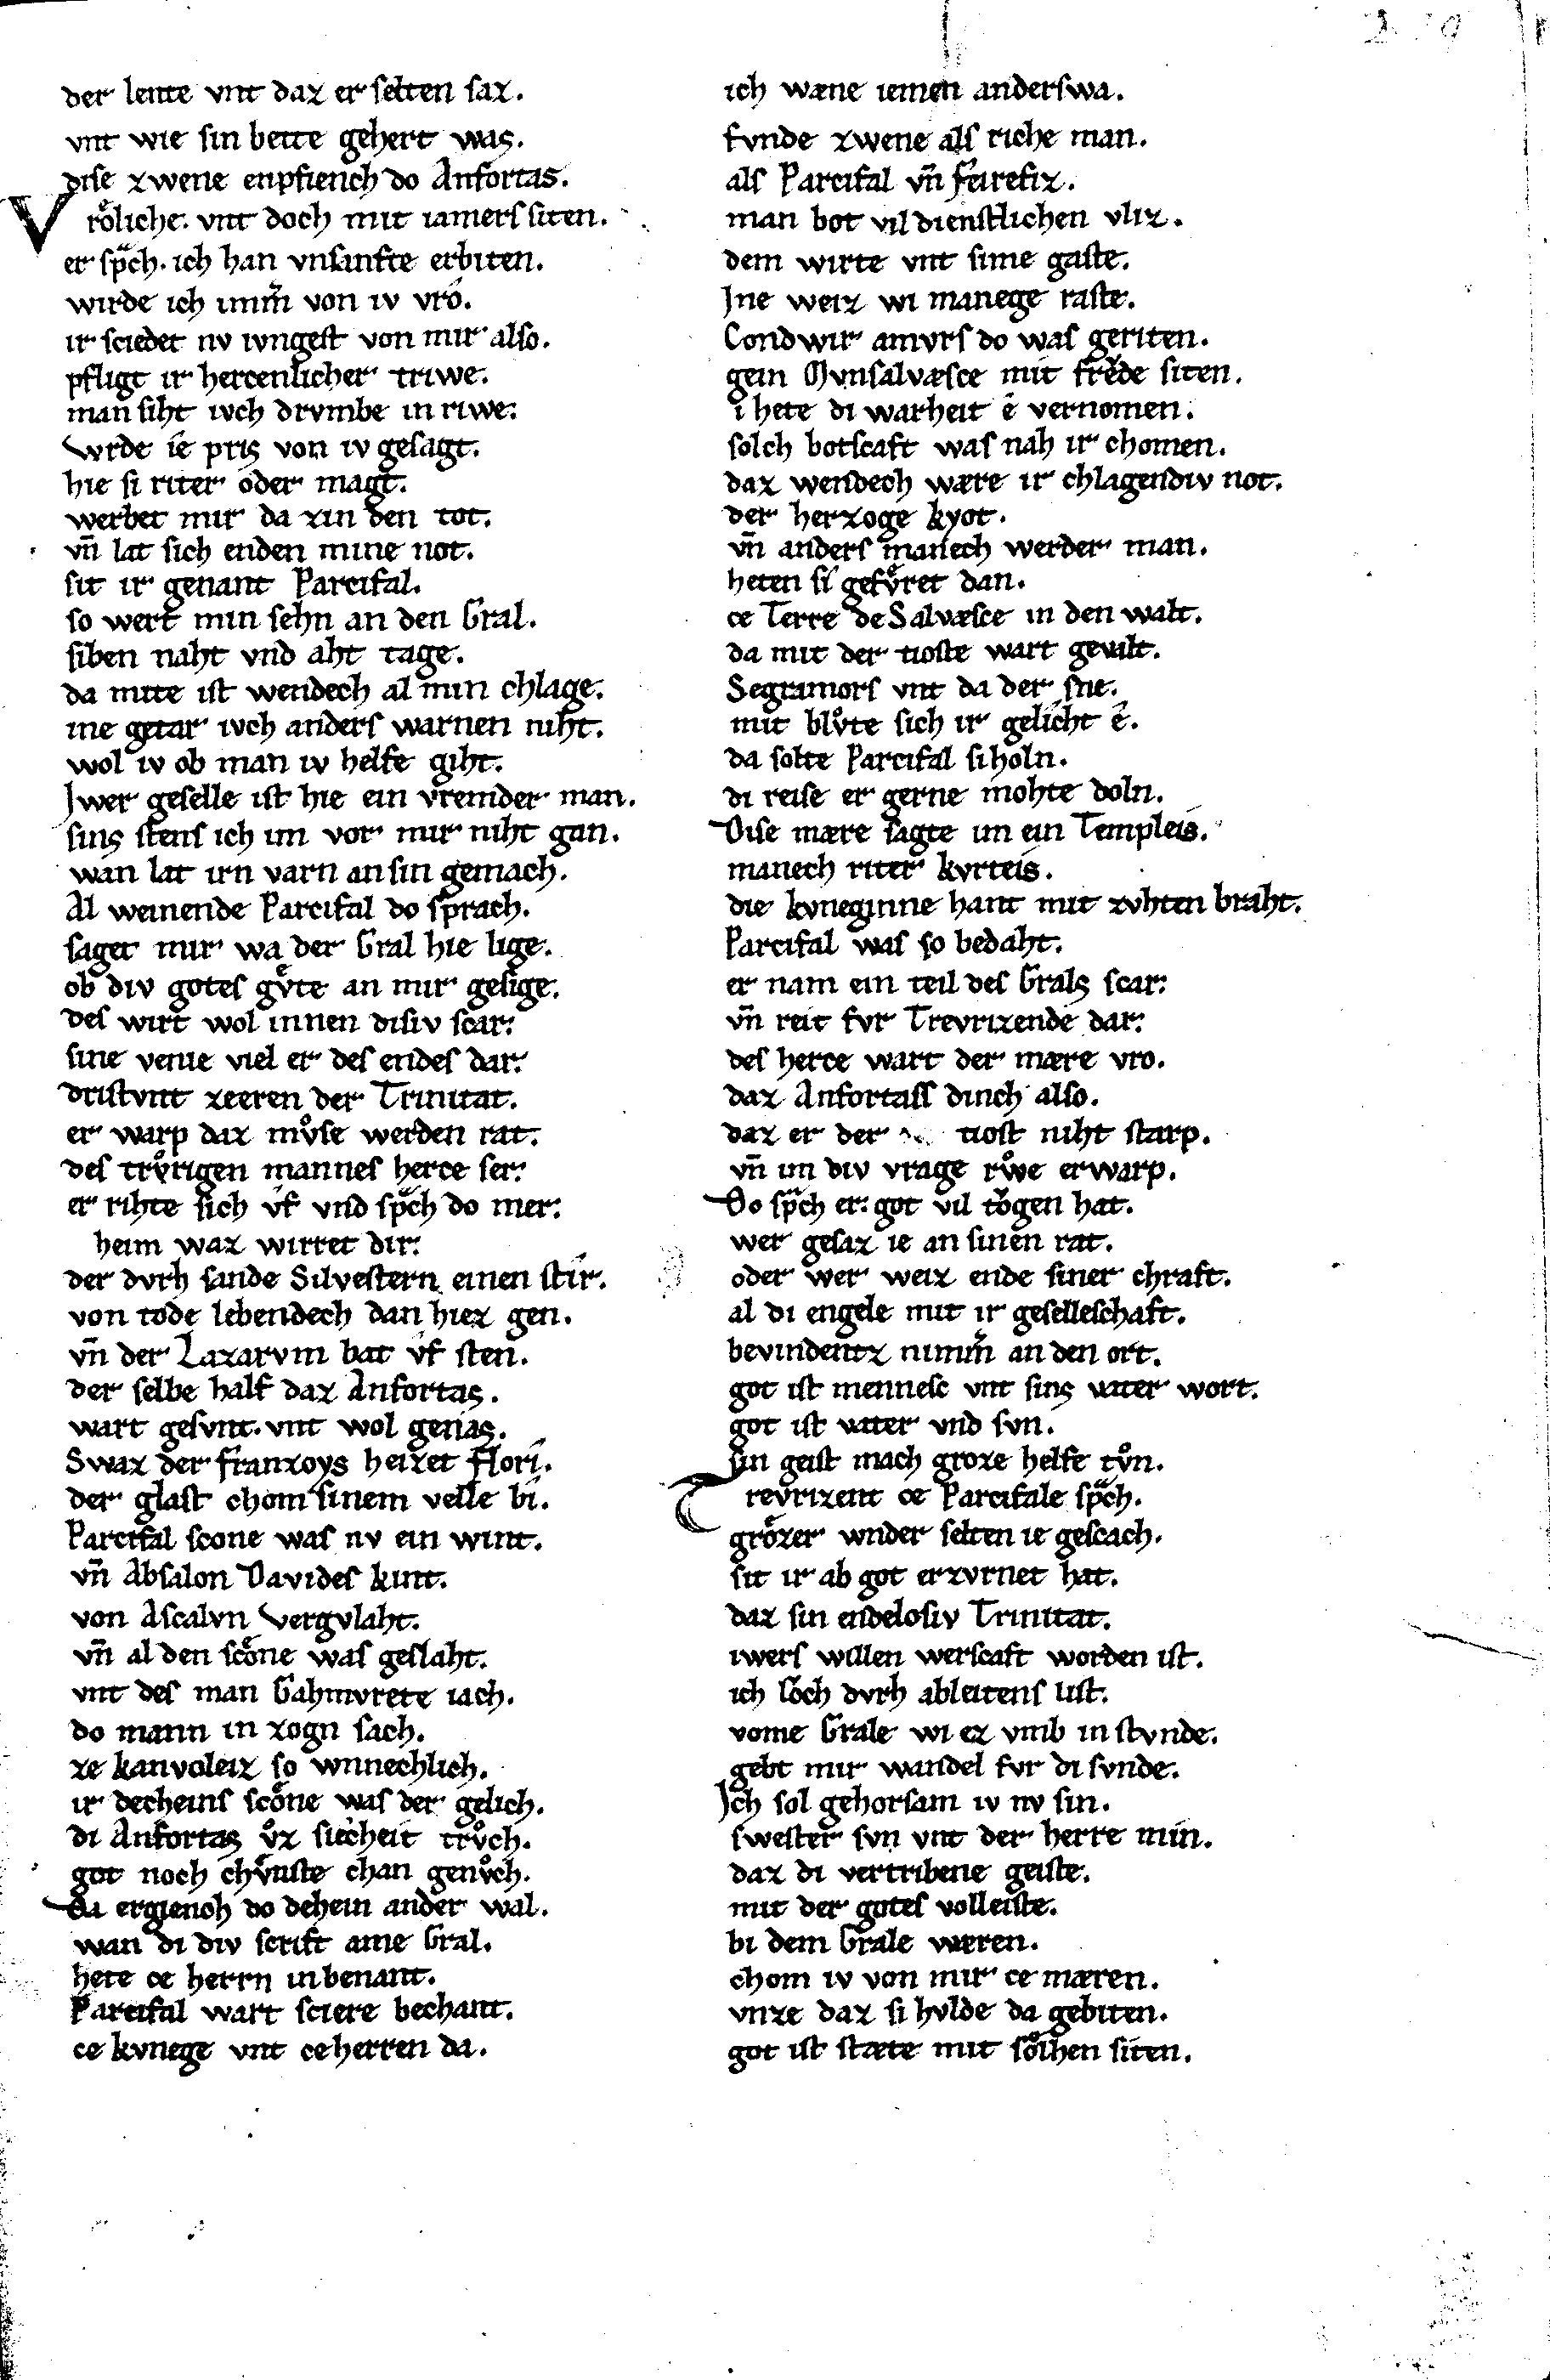 der lente vnt daz er selten saz.
vnt wie sin bette gehert was.
dise zwene enpfiench do Anfortas.
Vrͤoliche. vnt doch mit iamers siten.
er spͣch. ich han vnsanfte erbiten.
wirde ich imm̄ von iv vro.
ir sciedet nv ivngest von mir also.
pfligt ir hercenlicher triwe.
man siht ivch drvmbe in riwe.
wrde ie pris von iv gesagt.
hie si riter oder magt.
werbet mir da zin den tot.
vn̄ lat sich enden mine not.
sit ir genant Parcifal.
so wert min sehn an den Gral.
siben naht vnd aht tage.
da mite ist wendech al min chlage.
ine getar ivch anders warnen niht.
wol iv ob man iv helfe giht.
Iwer geselle ist hie ein vremder man.
sins stens ich im vor mir niht gan.
wan lat irn varn an sin gemach.
Al weinende Parcifal do sprach.
saget mir wa der Gral hie lige.
ob div gotes gvͤte an mir gesige.
des wirt wol innen disiv scar.
sine venie viel er des endes dar.
dristvnt zeeren der Trinitat.
er warp daz mvͦse werden rat.
des trvͦrigen mannes herce ser.
er rihte sich vf vnd spͣch do mer.
heim waz wirret dir.
der dvrh sande Silvestern einen stir.
von tode lebendech dan hiez gen.
vn̄ der Lazarvm bat vf sten.
der selbe half daz Anfortas.
wart gesvnt. vnt wol genas.
Swaz der franzoys heizet flori.
der glast chom sinem velle bi.
Parcifal scone was nv ein wint.
vn̄ Absalon Davides kint.
von Ascalvn Vergvlaht.
vn̄ al den scͤone was geslaht.
vnt des man Gahmvrete iach.
do mann in zogn sach.
ze kanvoleiz so wnnechlich.
ir decheins scͤone was der gelich.
di Anfortas vͦz siecheit trvͦch.
got noch chvͤnste chan genvͦch.
Da ergienoh do dehein ander wal.
wan di div scrift ame Gral.
hete ce herrn in benant.
Parcifal wart sciere bechant.
ce kvnege vnt ce herren da.
ich wæne iemen anderswa.
fvnde zwene als riche man.
als Parcifal vn̄ feirefiz.
man bot vil dienstlichen vliz.
dem wirte vnt sime gaste.
Ine weiz wi manege raste.
Condwir amvrs do was geriten.
gein Mvnsalvæsce mit frevͤde siten.
i hete di warheit ê vernomen.
solch botscaft was nah ir chomen.
daz wendech wære ir chlagendiv not.
der herzoge kyot.
vn̄ anders manech werder man.
heten si gefvͤret dan.
ce Terre de Salvæsce in den walt.
da mit der tioste wart gevalt.
Segramors vnt da der sne.
mit blvͦte sich ir gelicht ê.
da solte Parcifal si holn.
di reise er gerne mohte doln.
Dise mære sagte im ein Templeis.
manech riter kvrteis.
die kvneginne hant mit zvhten braht.
Parcifal was so bedaht.
er nam ein teil des Grals scar.
vn̄ reit fvr Trevrizende dar.
des herce wart der mære vro.
daz Anfortass dinch also.
daz er der tiost niht starp.
vn̄ im div vrage rvͦwe erwarp.
Do spͣch er. got vil tvͦgen hat.
wer gesaz ie an sinen rat.
oder wer weiz ende siner chraft.
al di engele mit ir geselleschaft.
bevindentz nimm̄ an den ort.
got ist mennesc vnt sins vater wort.
got ist vater vnd svn.
sin geist mach groze helfe tvͦn.
Trevrizent ce Parcifale spͣch.
grͤozer wnder selten ie gescach.
sit ir ab got erzvrnet hat.
daz sin endelosiv Trinitat.
iwers willen werscaft worden ist.
ich loch dvrh ableitens list.
vome Grale wi ez vmb in stvnde.
gebt mir wandel fvr di svnde.
Ich sol gehorsam iv nv sin.
swester svn vnt der herre min.
daz di vertribene geiste.
mit der gotes volleiste.
bi dem Grale wæren.
chom iv von mir ce mæren.
vnze daz si hvlde da gebiten.
got ist stæte mit solhen siten.